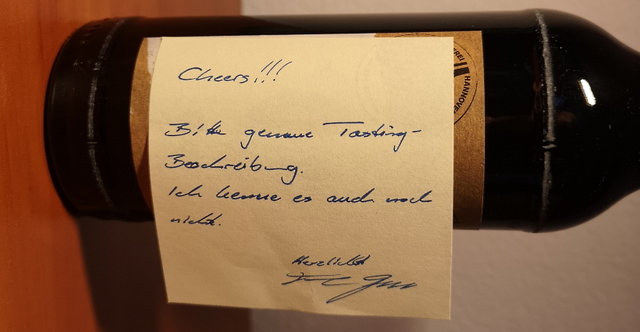 Cheers!!!
Bitte genaue Tasting-
Beschreibung.
Ich kenne es auch noch
nicht.
Herzlichst
EREI HANNOVER